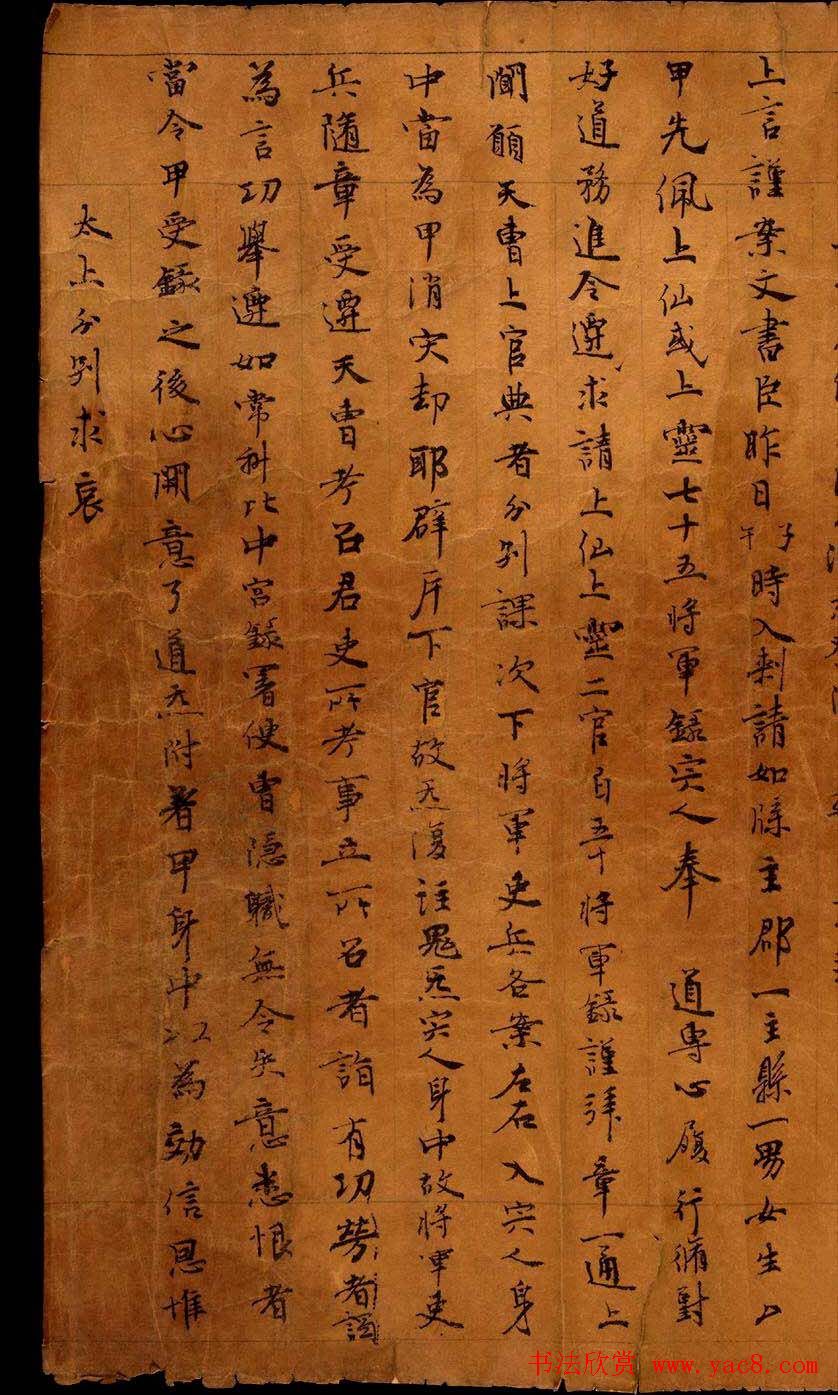 上言謹案文書臣昨日子午時入刺請如牒主郡一主縣一男女生厶
甲先佩上仙或上靈七十五將軍籙宍人奉 道專心履行脩
好道務進今遷求請上仙上靈二官百五十將軍籙謹拜章一通上
聞願天曹上官典者分別課次下將軍吏兵各案左右入宍人身
中當為甲消灾却耶辟斥下官故炁復註鬼炁宍人身中故將軍吏
兵隨章受遷天曹考召君吏所考事立所召者詣有功勞者
為言功舉遷如常科比中宮籙署使曹隱職無令失意恚恨者
當令甲受籙之後心開意了道炁附著甲身中以為効信恩惟
太上分別求哀
书法欣赏 www.yac8.com